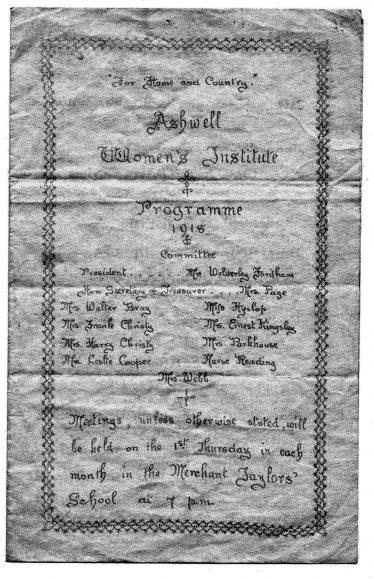 "For Home and Country."
Ashwell
Women's Institute
Programme
1918
Committee
President . . . . . . Mrs Wolverley Fordham
Hon Secretary & Treasurer . . . . Mrs Page
Mrs Walter Bray Miss Hyslop
Mrs. Frank Christy Mrs. Ernest Kingsley
Mrs. Harry Christy Mrs Parkhouse
Mrs. Leslie Cooper Nurse Reading
Mrs. Webb
Meetings, unless otherwise stated, will
be held on the 1st Thursday in each
month in the Merchant Taylors'
School at 7 p.m.